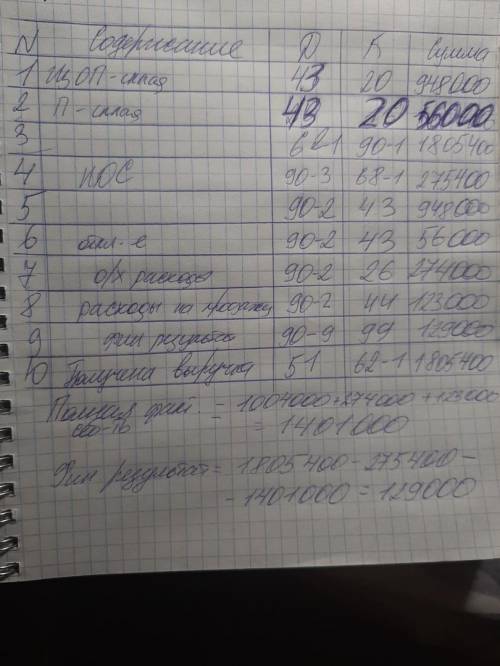 N Содержание Д К Сумма
1 ЦЗОП-склад 43 20 948000
2 П-склад 43 20 56000
3 62-1 90-1 1805400
4 НДС 90-3 68-1 275400
5 90-2 43 948000
6 откл-е 90-2 43 56000
7 о/х расходы 90-2 26 274000
8 расходы на продажу 90-2 44 123000
9 фин результат 90-9 99 129000
10 Получена выручка 51 62-1 1805400
Полная факт. = 1004000+274000+123000
себ-ть = 1401000
Фин результат = 1805400-275400-
-1401000=129000